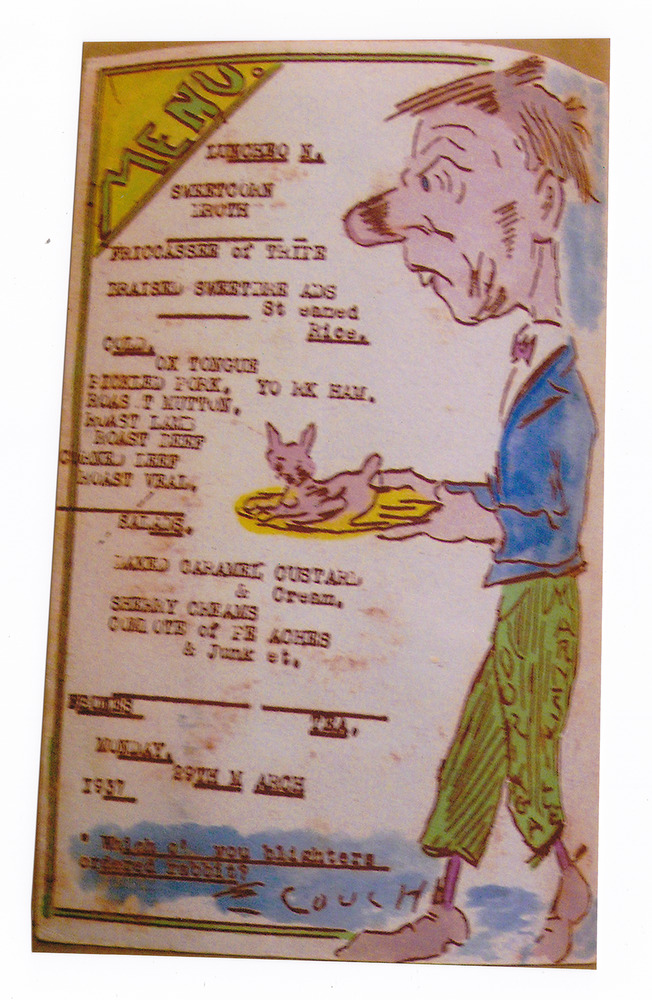 MENU.
LUNCHEO N.
SWEETCORN
BROTH
FRICCASSEE of TRIPE
BRAISED SWEETBRE ADS
St eamed
Rice.
COLD.
OX TONGUE
PICKLED PORK. YO RK HAM.
ROAS T MUTTON.
ROAST LAMB
ROAST BEEF
CORNED BEEF
ROAST VEAL.
SALADS.
BAKED CARAMEL CUSTARD
& Cream.
SHERRY CREAMS
COMPOTE of PE ACHES
& Junk et.
TEA.
MONDAY.
29TH M ARCH
1937
" Which of you blighters
ordered rabbit?
E COUCH